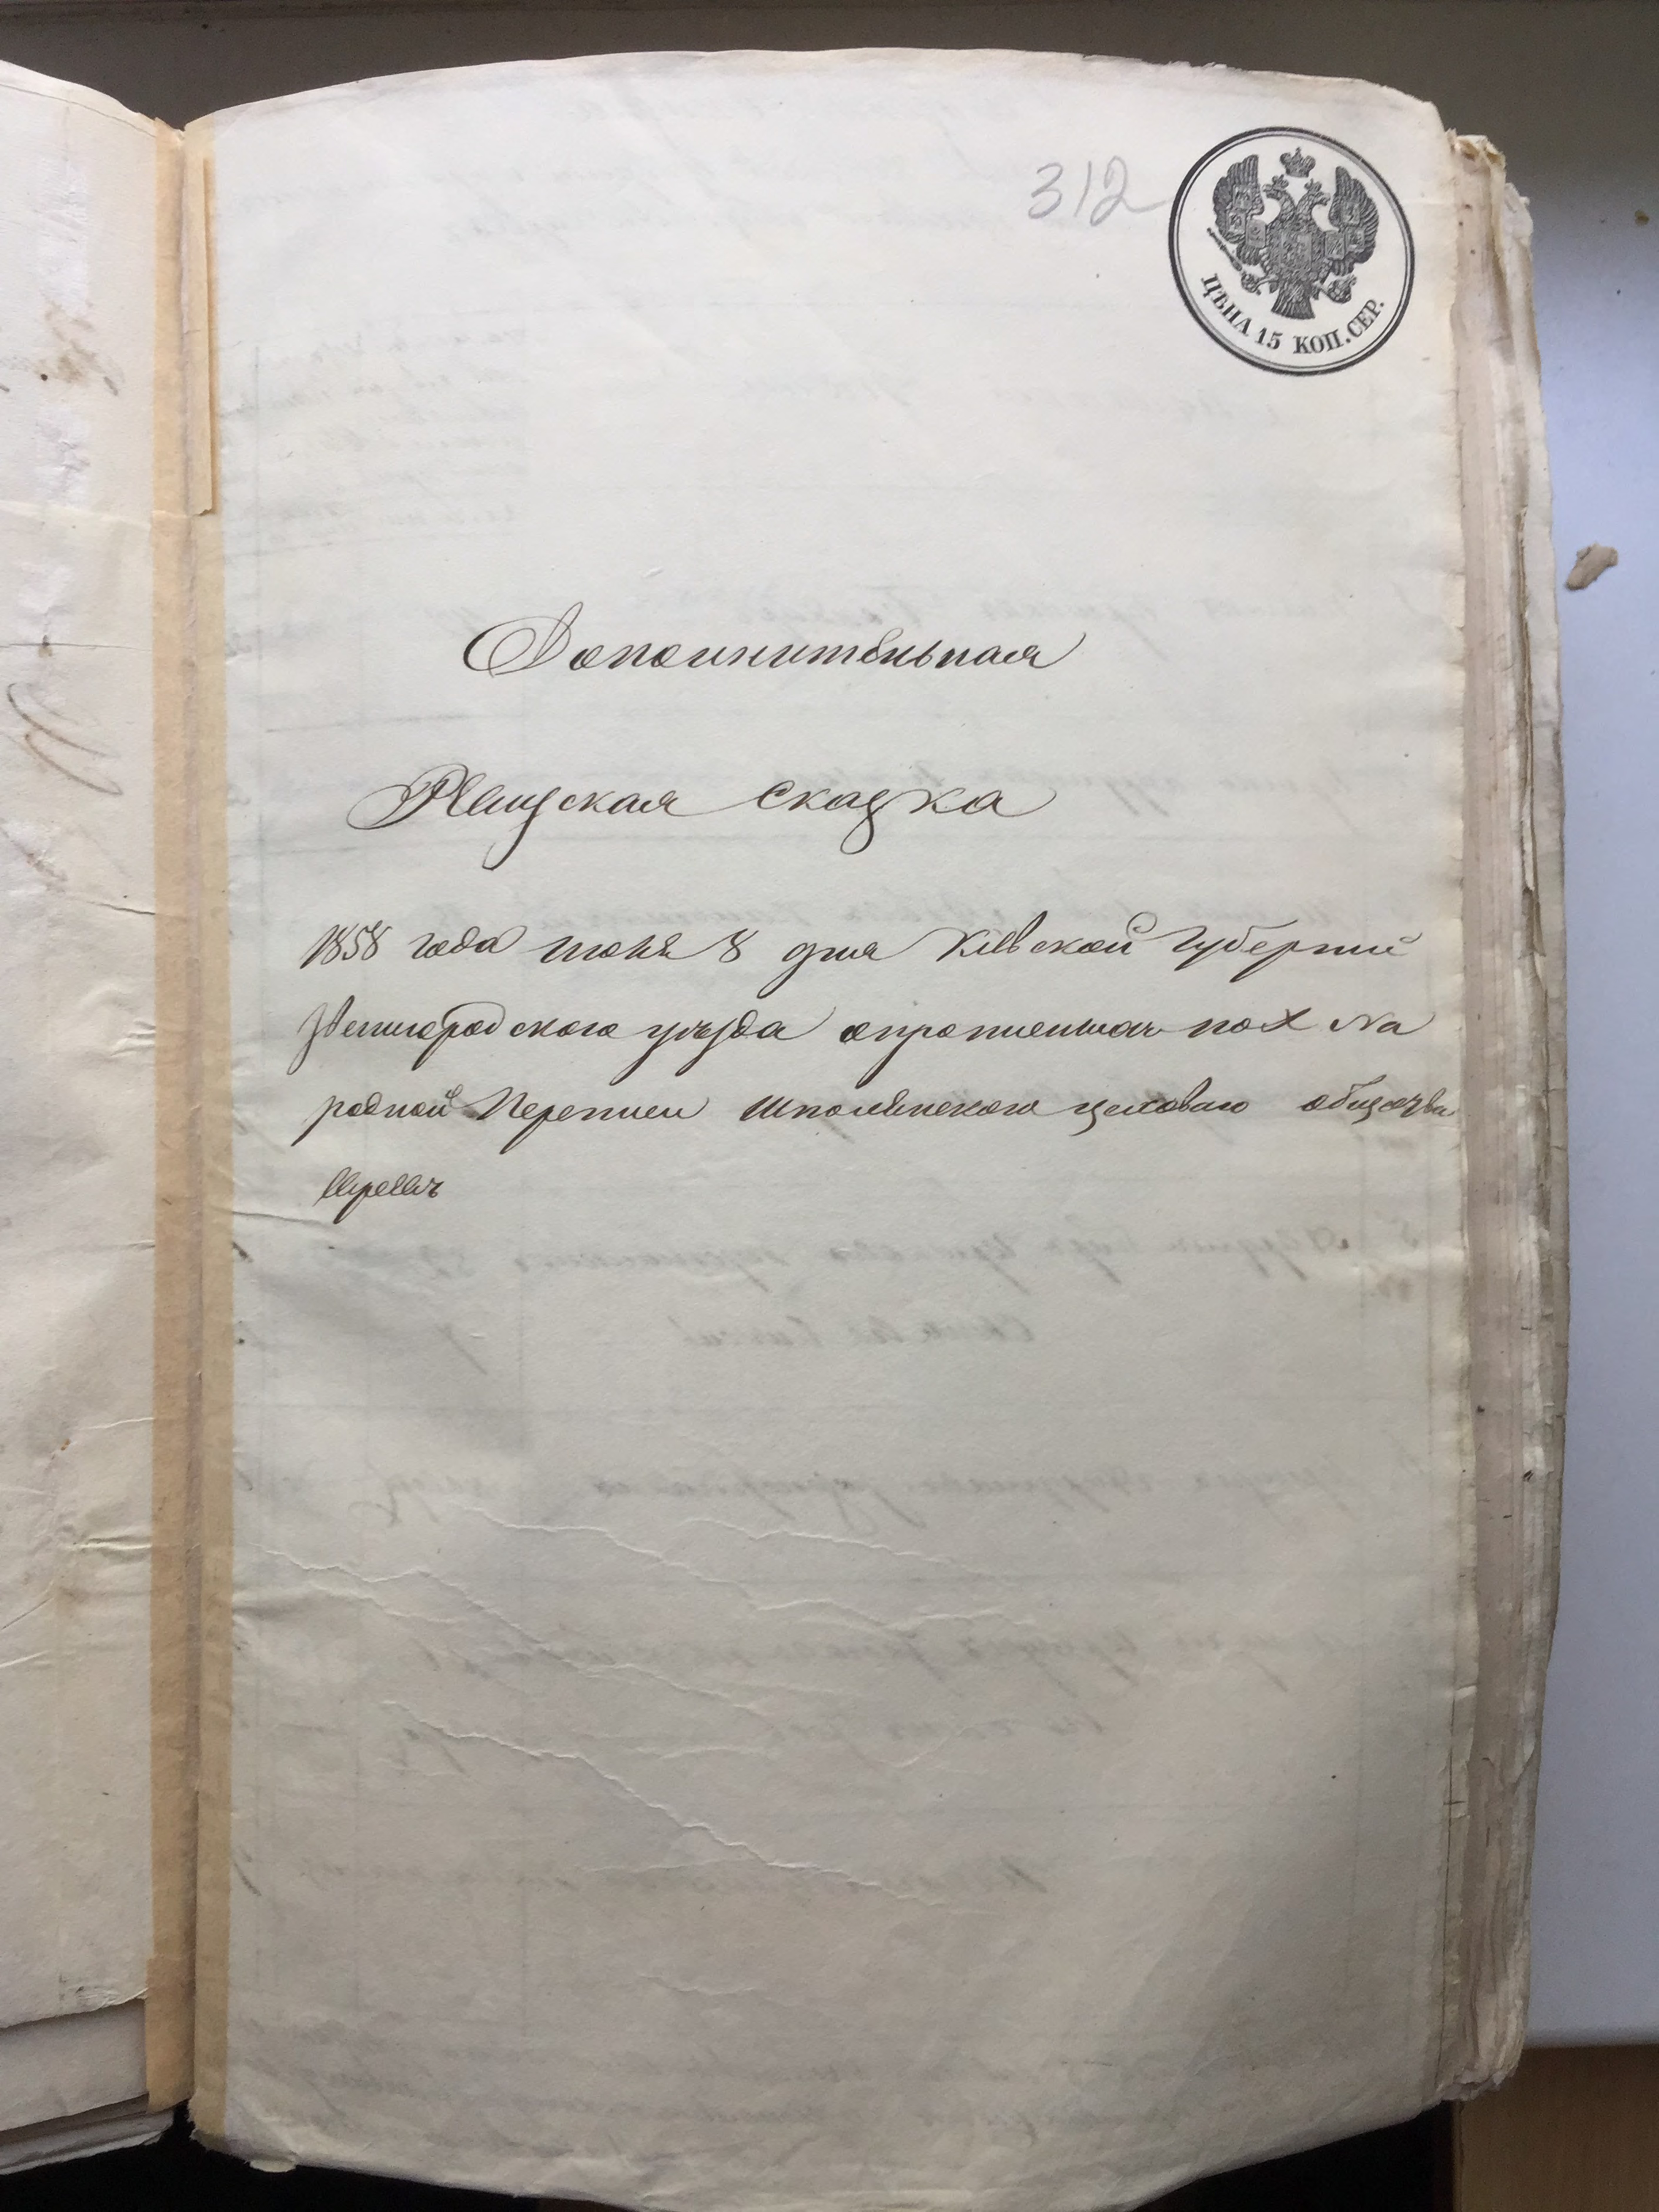 312
ЦѢНА 15 КОП. СЕР.
Дополнительная
Ревизская сказка
1858 года июня 8 дня Киевской Губернии
Звенигородского уѣзда опропущенныхъ по X На
родной Переписи Шполянского цеховаго общества
Евреевъ